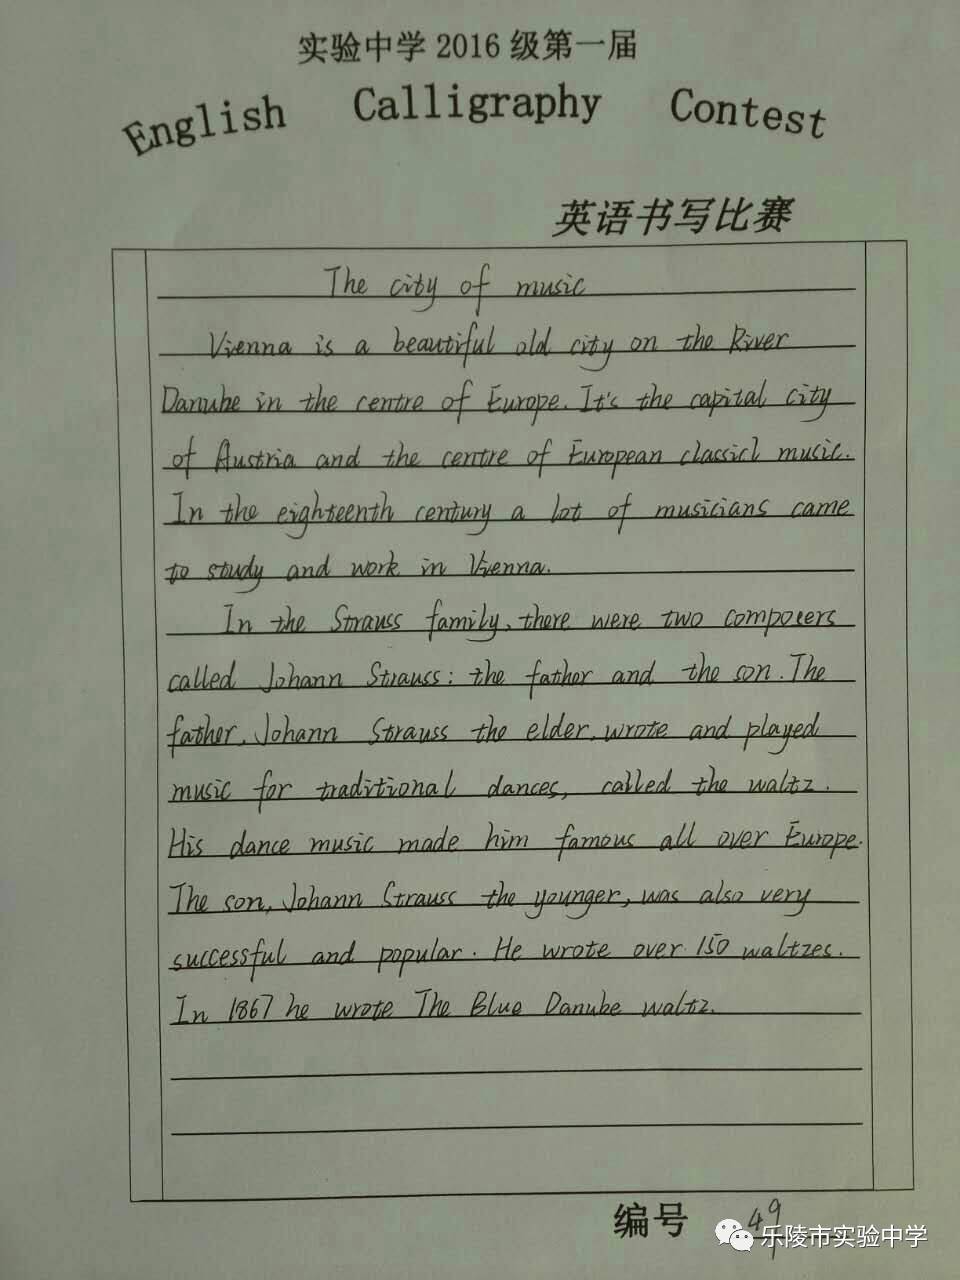 实验中学2016级第一届
English Calligraphy Contest
英语书写比赛
The city of music
Vienna is a beautiful old city on the River
Danube in the centre of Europe. It's the capital city
of Austria and the centre of European classicl music.
In the eighteenth century a lot of musicians came
to study and work in Vienna.
In the Strauss family, there were two composers
called Johann Strauss: the father and the son. The
father, Johann Strauss the elder, wrote and played
music for traditional dances, called the waltz.
His dance music made him famous all over Europe.
The son, Johann Strauss the younger, was also very
successful and popular. He wrote over 150 waltzes.
In 1867 he wrote The Blue Danube waltz.
编号 49
乐陵市实验中学